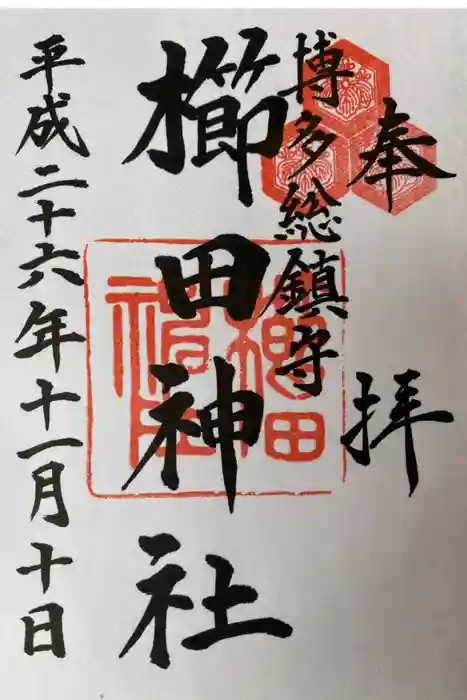 奉拝
博多総鎮守
櫛田神社
平成二十六年十一月十日
櫛田
神社